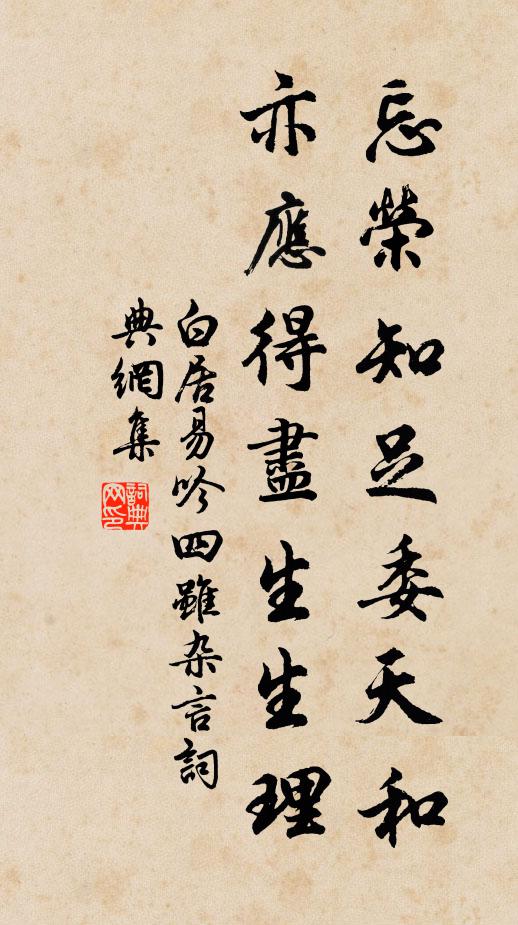 忘榮知足委天和
亦應得盡生生理
白居易吟四雖杂言詞
典網集
詞典网印